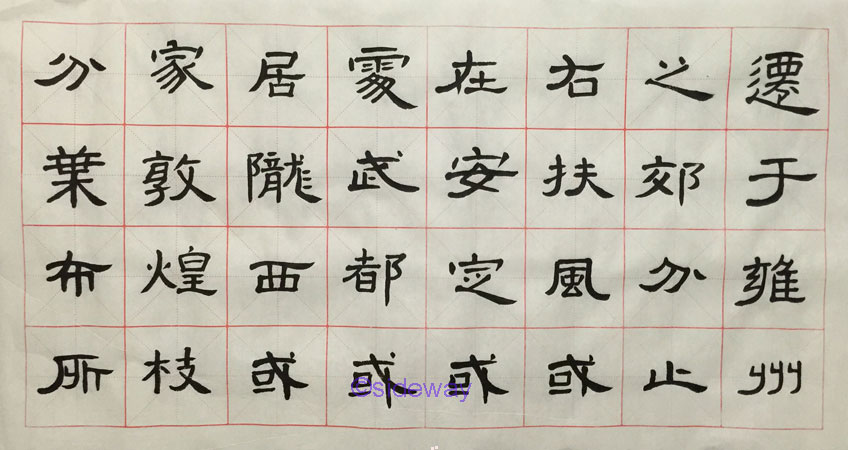 遷于雍州
之郊分止
右扶風或
在安定或
處武都或
居隴西或
家敦煌枝
分葉布所
©sideway